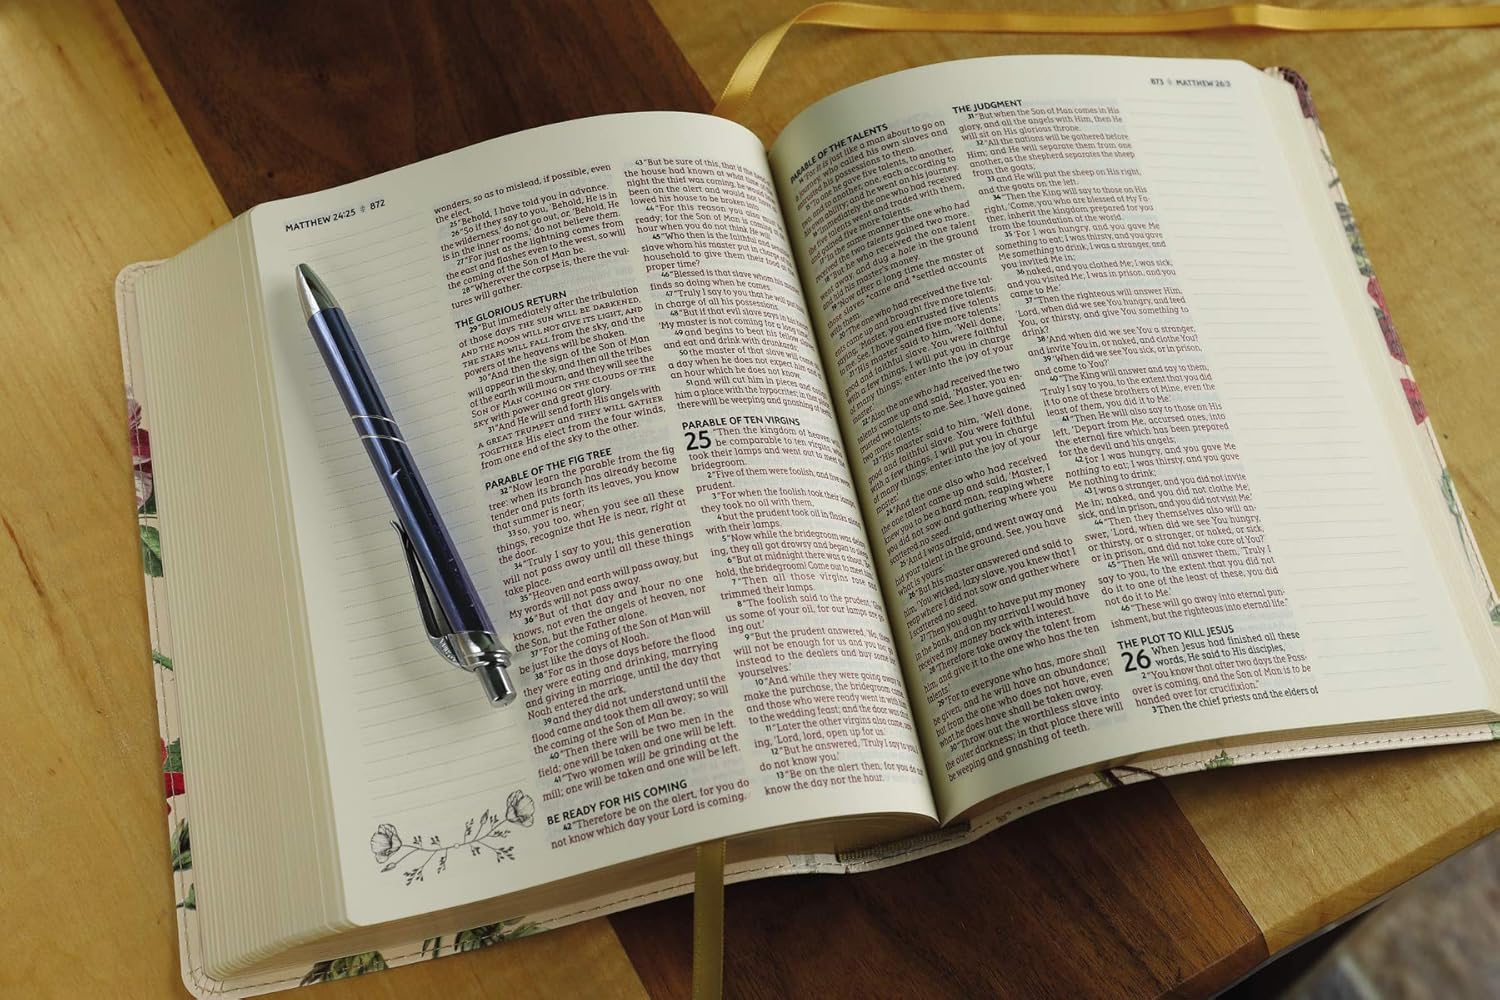 MATTHEW 24:25 872
wonders, so as to mislead, if possible, even
the elect.
25 "Behold, I have told you in advance.
26 "So if they say to you, 'Behold, He is
in the wilderness,' do not go out, or, 'Behold, He
is in the inner rooms,' do not believe them.
27 "For just as the lightning comes from
the east and flashes even to the west, so will
the coming of the Son of Man be.
28 "Wherever the corpse is, there the vul-
tures will gather.
THE GLORIOUS RETURN
29 "But immediately after the tribulation
of those days THE SUN WILL BE DARKENED,
AND THE MOON WILL NOT GIVE ITS LIGHT, AND
THE STARS WILL FALL from the sky, and the
powers of the heavens will be shaken.
30 "And then the sign of the Son of Man
will appear in the sky, and then all the tribes
of the earth will mourn, and they will see the
SON OF MAN COMING ON THE CLOUDS OF THE
SKY with power and great glory.
31 "And He will send forth His angels with
A GREAT TRUMPET and THEY WILL GATHER
TOGETHER His elect from the four winds,
from one end of the sky to the other.
PARABLE OF THE FIG TREE
32 "Now learn the parable from the fig
tree: when its branch has already become
tender and puts forth its leaves, you know
that summer is near;
33 so, you too, when you see all these
things, recognize that He is near, right at
the door.
34 "Truly I say to you, this generation
will not pass away until all these things
take place.
35 "Heaven and earth will pass away, but
My words will not pass away.
36 "But of that day and hour no one
knows, not even the angels of heaven, nor
the Son, but the Father alone.
37 "For the coming of the Son of Man will
be just like the days of Noah.
38 "For as in those days before the flood
they were eating and drinking, marrying
and giving in marriage, until the day that
Noah entered the ark,
39 and they did not understand until the
flood came and took them all away; so will
the coming of the Son of Man be.
40 "Then there will be two men in the
field; one will be taken and one will be left.
41 "Two women will be grinding at the
mill; one will be taken and one will be left.
BE READY FOR HIS COMING
42 "Therefore be on the alert, for you do
not know which day your Lord is coming.
43 "But be sure of this, that if the head of
the house had known at what time of the
night the thief was coming, he would have
been on the alert and would not have al-
lowed his house to be broken into.
44 "For this reason you also must be
ready; for the Son of Man is coming at an
hour when you do not think He will.
45 "Who then is the faithful and sensible
slave whom his master put in charge of his
household to give them their food at the
proper time?
46 "Blessed is that slave whom his master
finds so doing when he comes.
47 "Truly I say to you that he will put him
in charge of all his possessions.
48 "But if that evil slave says in his heart,
'My master is not coming for a long time,'
49 and begins to beat his fellow slaves
and eat and drink with drunkards;
50 the master of that slave will come on
a day when he does not expect him and at
an hour which he does not know,
51 and will cut him in pieces and assign
him a place with the hypocrites; in that place
there will be weeping and gnashing of teeth.
PARABLE OF TEN VIRGINS
25 "Then the kingdom of heaven will
be comparable to ten virgins, who
took their lamps and went out to meet the
bridegroom.
2 "Five of them were foolish, and five were
prudent.
3 "For when the foolish took their lamps,
they took no oil with them,
4 but the prudent took oil in flasks along
with their lamps.
5 "Now while the bridegroom was delay-
ing, they all got drowsy and began to sleep.
6 "But at midnight there was a shout, 'Be-
hold, the bridegroom! Come out to meet him.'
7 "Then all those virgins rose and
trimmed their lamps.
8 "The foolish said to the prudent, 'Give
us some of your oil, for our lamps are go-
ing out.'
9 "But the prudent answered, 'No, there
will not be enough for us and you too; go
instead to the dealers and buy some for
yourselves.'
10 "And while they were going away to
make the purchase, the bridegroom came,
and those who were ready went in with him
to the wedding feast; and the door was shut.
11 "Later the other virgins also came, say-
ing, 'Lord, lord, open up for us.'
12 "But he answered, 'Truly I say to you, I
do not know you.'
13 "Be on the alert then, for you do not
know the day nor the hour.
873 MATTHEW 26:3
PARABLE OF THE TALENTS
14 "For it is just like a man about to go on
a journey, who called his own slaves and
entrusted his possessions to them.
15 "To one he gave five talents, to another,
two, and to another, one, each according to
his own ability; and he went on his journey.
16 "Immediately the one who had received
the five talents went and traded with them,
and gained five more talents.
17 "In the same manner the one who had
received the two talents gained two more.
18 "But he who received the one talent
went away, and dug a hole in the ground
and hid his master's money.
19 "Now after a long time the master of
those slaves *came and *settled accounts
with them.
20 "The one who had received the five tal-
ents came up and brought five more talents,
saying, 'Master, you entrusted five talents
to me. See, I have gained five more talents.'
21 "His master said to him, 'Well done,
good and faithful slave. You were faithful
with a few things, I will put you in charge
of many things; enter into the joy of your
master.'
22 "Also the one who had received the two
talents came up and said, 'Master, you en-
trusted two talents to me. See, I have gained
two more talents.'
23 "His master said to him, 'Well done,
good and faithful slave. You were faithful
with a few things, I will put you in charge
of many things; enter into the joy of your
master.'
24 "And the one also who had received
the one talent came up and said, 'Master, I
knew you to be a hard man, reaping where
you did not sow and gathering where you
scattered no seed.
25 'And I was afraid, and went away and
hid your talent in the ground. See, you have
what is yours.'
26 "But his master answered and said to
him, 'You wicked, lazy slave, you knew that I
reap where I did not sow and gather where
I scattered no seed.
27 'Then you ought to have put my money
in the bank, and on my arrival I would have
received my money back with interest.
28 'Therefore take away the talent from
him, and give it to the one who has the ten
talents.'
29 "For to everyone who has, more shall
be given, and he will have an abundance;
but from the one who does not have, even
what he does have shall be taken away.
30 "Throw out the worthless slave into
the outer darkness; in that place there will
be weeping and gnashing of teeth.
THE JUDGMENT
31 "But when the Son of Man comes in His
glory, and all the angels with Him, then He
will sit on His glorious throne.
32 "All the nations will be gathered before
Him; and He will separate them from one
another, as the shepherd separates the sheep
from the goats;
33 and He will put the sheep on His right,
and the goats on the left.
34 "Then the King will say to those on His
right, 'Come, you who are blessed of My Fa-
ther, inherit the kingdom prepared for you
from the foundation of the world.
35 'For I was hungry, and you gave Me
something to eat; I was thirsty, and you gave
Me something to drink; I was a stranger, and
you invited Me in;
36 naked, and you clothed Me; I was sick,
and you visited Me; I was in prison, and you
came to Me.'
37 "Then the righteous will answer Him,
'Lord, when did we see You hungry, and feed
You, or thirsty, and give You something to
drink?
38 'And when did we see You a stranger,
and invite You in, or naked, and clothe You?
39 'When did we see You sick, or in prison,
and come to You?'
40 "The King will answer and say to them,
'Truly I say to you, to the extent that you did
it to one of these brothers of Mine, even the
least of them, you did it to Me.'
41 "Then He will also say to those on His
left, 'Depart from Me, accursed ones, into
the eternal fire which has been prepared
for the devil and his angels;
42 for I was hungry, and you gave Me
nothing to eat; I was thirsty, and you gave
Me nothing to drink;
43 I was a stranger, and you did not invite
Me in; naked, and you did not clothe Me;
sick, and in prison, and you did not visit Me.'
44 "Then they themselves also will an-
swer, 'Lord, when did we see You hungry,
or thirsty, or a stranger, or naked, or sick,
or in prison, and did not take care of You?'
45 "Then He will answer them, 'Truly I
say to you, to the extent that you did not
do it to one of the least of these, you did
not do it to Me.'
46 "These will go away into eternal pun-
ishment, but the righteous into eternal life."
THE PLOT TO KILL JESUS
26 When Jesus had finished all these
words, He said to His disciples,
2 "You know that after two days the Pass-
over is coming, and the Son of Man is to be
handed over for crucifixion."
3 Then the chief priests and the elders of